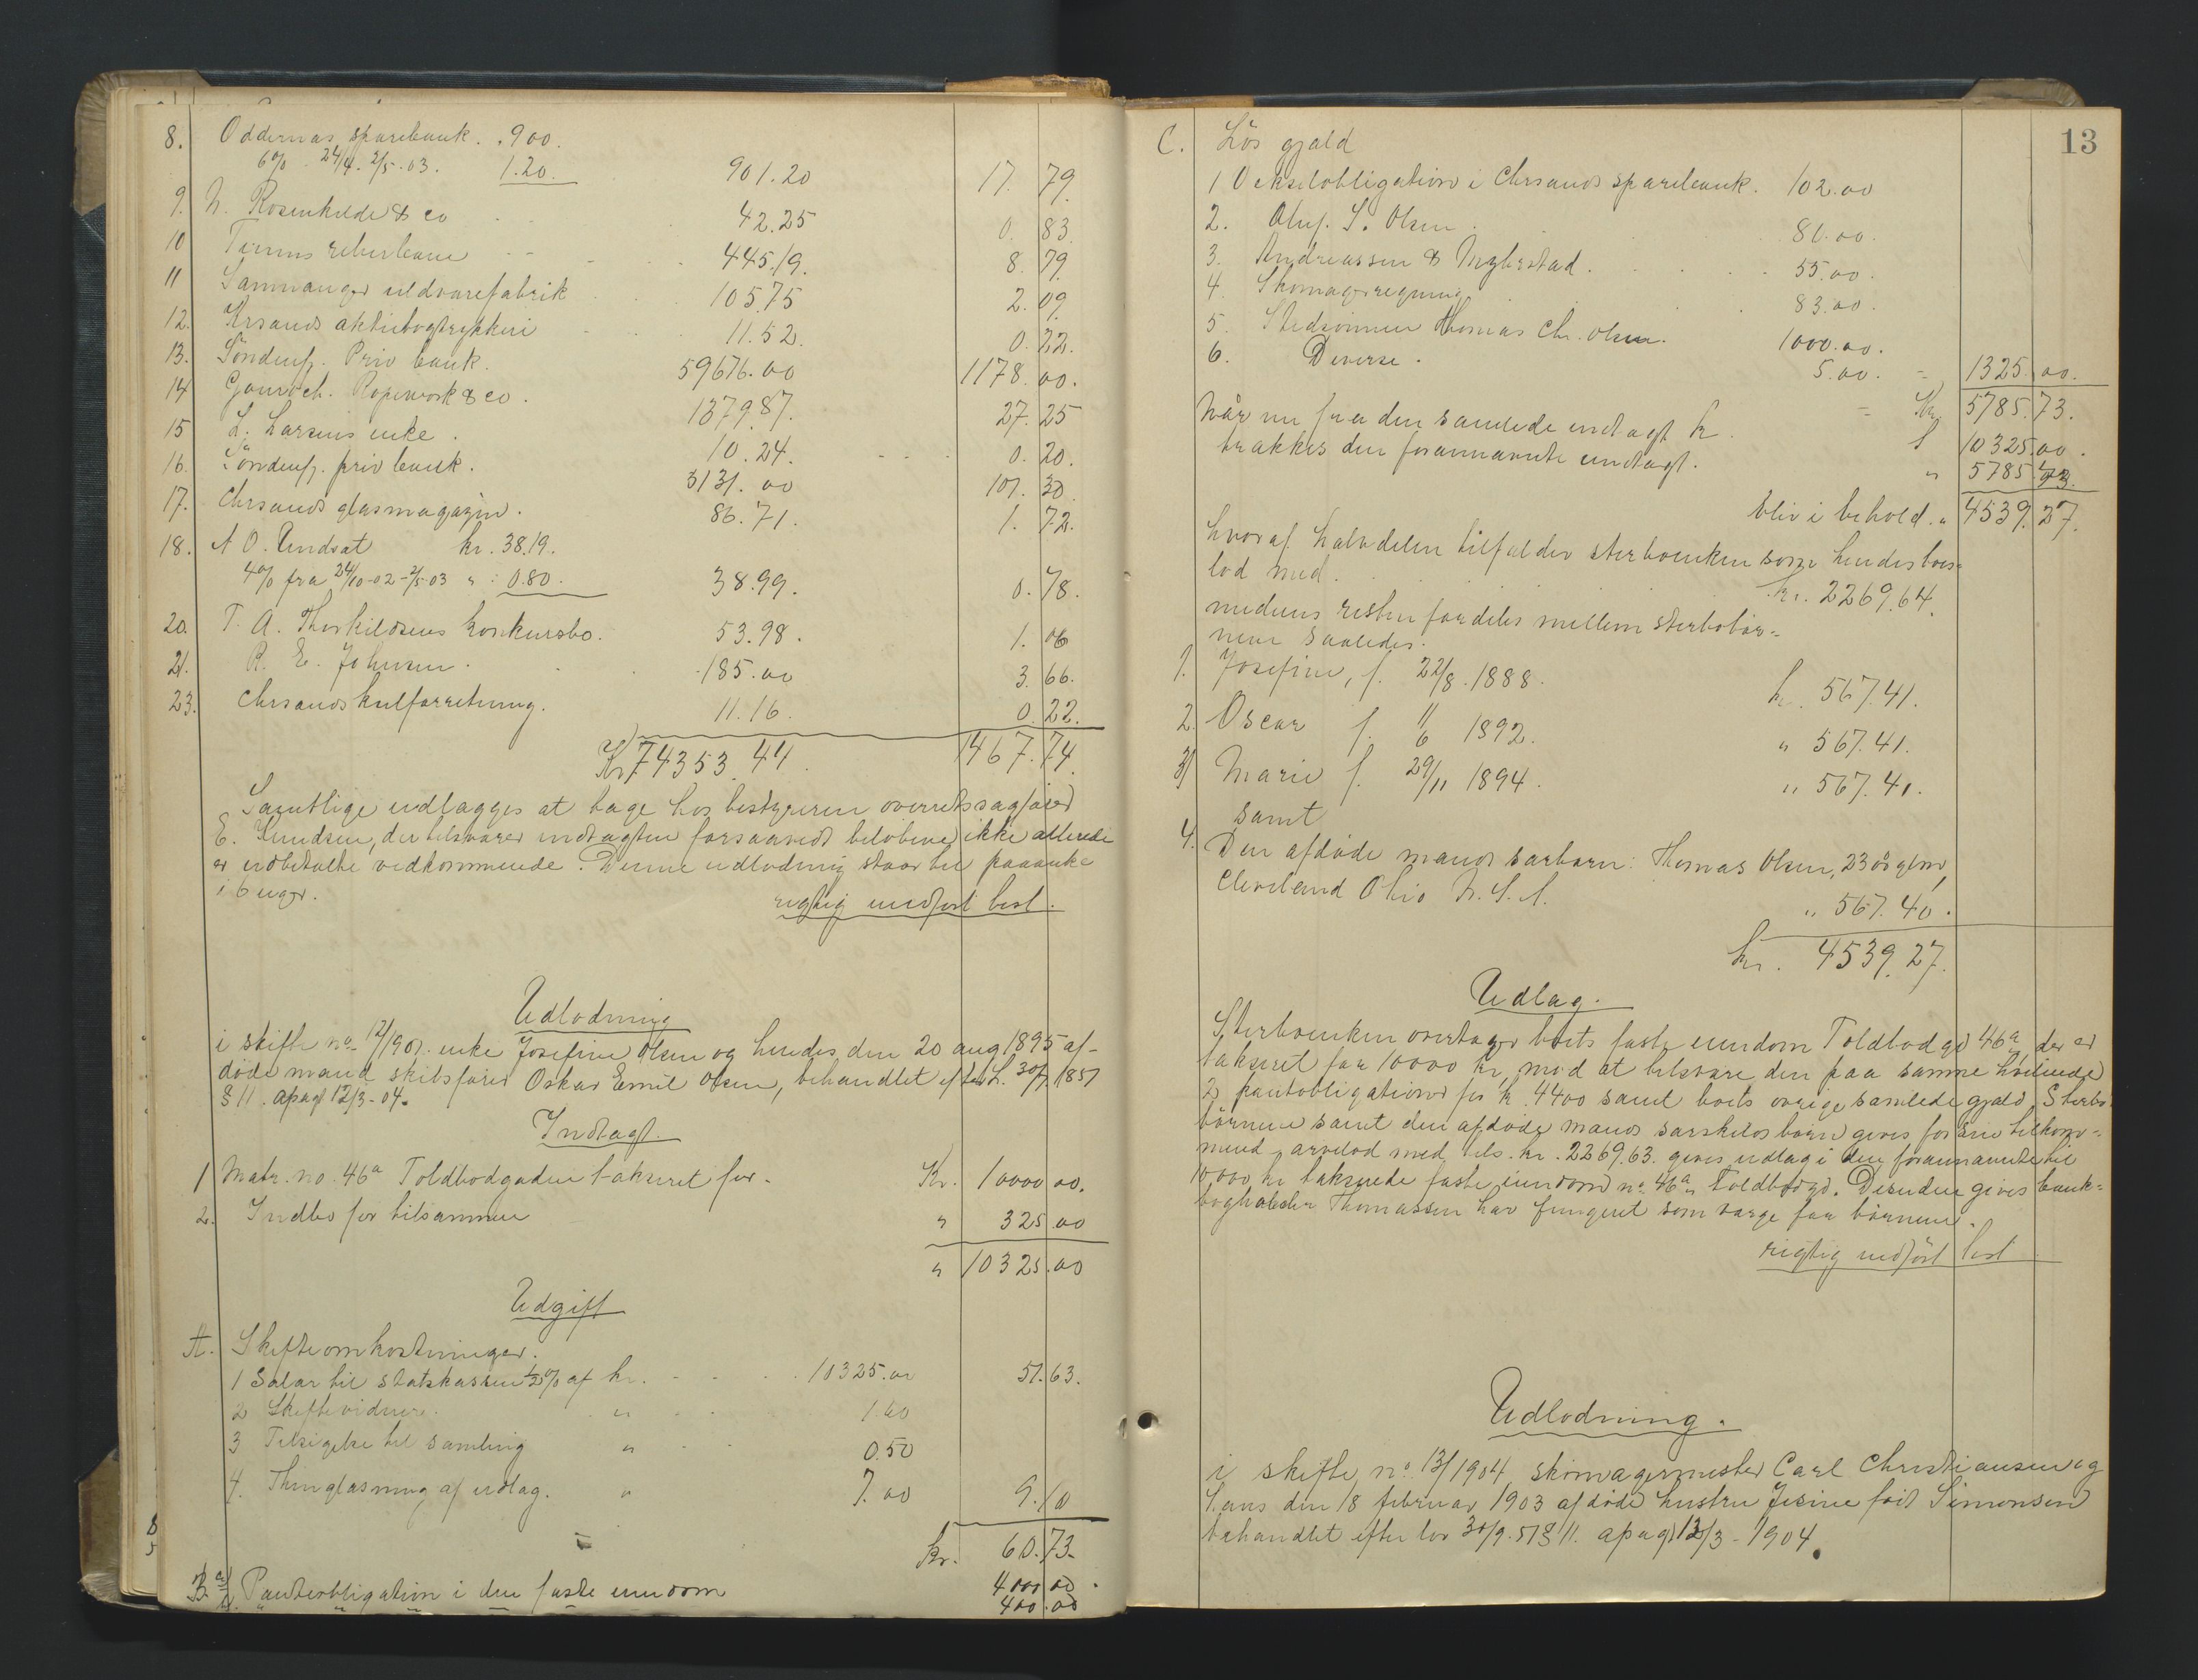 8. Oddernas sparebank . . 900.
6% . 24/4 . 2/5 . 03. 1.20. 901.20 17. 79.
9. N. Rosenkilde & co 42.25 0. 83.
10 Tinns reberbane 445.19. 8. 79.
11 Samnanger uldvarefabrik 105.75 2. 09.
12. Krsands aktiebogtrykkeri 11.52. 0. 22.
13. Söndenfj. Priv bank. 59676.00 1178. 00.
14 Gourock. Ropework & co. 1379.87. 27. 25
15 L. Larsens enke . 10.24. 0. 20.
16. Söndenfj. priv bank. 5131.00 101. 30.
17. Chrsands glasmagazin . 86.71. 1. 72.
18. A O. Undsat kr. 38.19.
4% fra 24/10-02 - 2/5-03 " : 0.80. 38.99. 0. 78.
20. T. A. Thorkildsens konkursbo. 53.98. 1. 06
21. R. E. Johnsen . 185.00 3. 66.
23. Chrsands kulforretning. 11.16. 0. 22.
Kr 74353.44 1467. 74.
Samtlige udlægges at tage hos bestyreren overretssagfører
E. Knudsen, der tilsvarer indtægten forsaavidt beløbene ikke allerede
er udbetalte vedkommende. Denne udlodning staar til paaanke
i 6 uger.
rigtig indført best.
Udlodning
i skifte no 12/1901. enke Josefine Olsen og hendes den 20 aug 1895 af-
døde mand skibsfører Oskar Emil Olsen, behandlet ef lov 30/7 1851
§ 11. apagt 12/3-04.
Indtægt.
1 Matr. no. 46a Toldbodgaden takseret for . Kr. 10000 00.
2. Indbo for tilsammen " 325.00
" 10325.00
Udgift
A. Skifteomkostninger.
1 Salær til statskassen 1/2% af kr. 10325.00 51. 63.
2 Skiftevidner. " 1.60
3 Tilsigelse til samling " 0.50
4. Thinglæsning af udlag. " 7.00 9. 10
Kr. 60. 73.
B. a/ Pantobligation i den faste eiendom 4000 00.
b. " " " " " 400.00
13
C. Lös gjæld
1 Vekselobligation i Chrsands sparebank. 102.00
2. Oluf. S. Olsen . 80.00.
3. Andreassen & Myhrstad . 55.00.
4. Skomagerregning 83.00.
5. Stedsönnen Thomas Chr. Olsen. 1000.00.
6. Diverse . 5.00. = 1325. 00.
= Kr. 5785. 73.
Når nu fra den samlede indtægt kr. 10325.00.
trækkes den forannævnte udgift. " 5785. 73.
bliv i behold. " 4539. 27.
hvoraf halvdelen tilfalder sterboenken som hendes boes-
lod med . kr. 2269.64.
medens resten fordeles mellem sterbobør-
nene saaledes.
1. Josefine, f. 22/8 . 1888. kr. 567.41.
2. Oscar f. 11/6 1892. " 567.41.
3) Marie f. 29/11 1894. " 567.41.
samt
4. Den afdøde mands særbarn: Thomas Olsen, 23 år glm,
Cleveland Ohio N. S. A. " 567.40.
kr. 4539.27.
Udlag.
Sterboenken overtager boets faste eiendom Toldbodgd 46a, der er
takseret for 10000 kr, mod at tilsvare den paa samme hvilende
2 pantobligationer for kr. 4400 samt boets øvrige samlede gjæld. Sterbo-
börnene samt den afdøde mands særskilds barn gives for sin tilkom-
mend arvelod med tils. kr. 2269.63. gives udlag i den forannævnte til
10,000 kr taksrede faste eiendom no 46a Toldbodgd. Desuden gives bank-
bogholder Thomassen har fungeret som værge for börnene.
rigtig indfört best
Udlodning.
i skifte no 13/1904 skomagermester Carl Christiansen og
hans den 18 februar 1903 afdöde hustru Jesine föd Simonsen
behandlet efter lov 30/7. 51 § 11. apagt 12/3 - 1904.